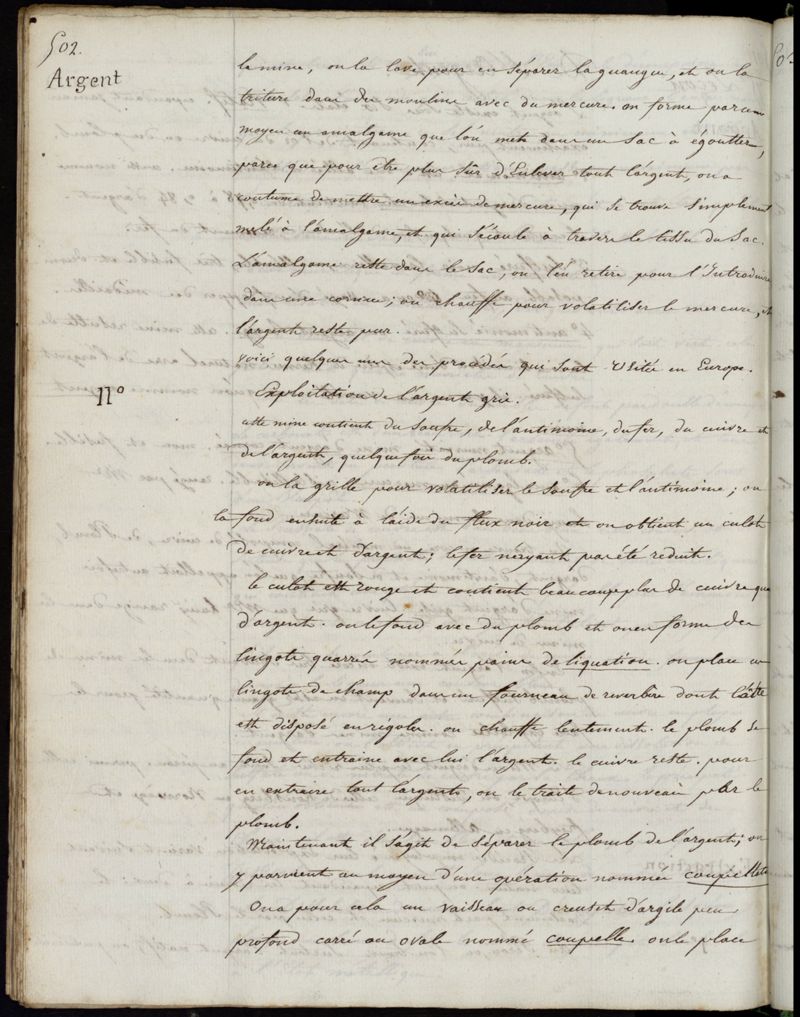 502.
Argent
la mine, on la lave pour en séparer la guangue, et on la
triture dans des moulins avec du mercure. on forme par ce
moyen un amalgame que l'on mets dans un sac à égoutter,
parce que pour être plus sûr d'Enlever tout l'argent, on a
coutume de mettre un excès de mercure, qui se trouve simplement
melé à l'amalgame, et qui s'écoule à travers le tissu du Sac.
L'amalgame reste dans le sac, on l'en retire pour l'Introduire
dans une cornue; on chauffe pour volatiliser le mercure, et
l'argent reste pur.
voici quelques uns des procédés qui sont Usités en Europe.
11°
Exploitation de l'argent gris.
cette mine contient du soufre, de l'antimoine, du fer, du cuivre et
de l'argent, quelquefois du plomb.
on la grille pour volatiliser le soufre et l'antimoine; on
la fond ensuite à l'aide du flux noir et on obtient un culot
de cuivre et d'argent; le fer n'éyant pas été reduit.
le culot est rouge et contient beaucoup plus de cuivre que
d'argent. on le fond avec du plomb et on en forme des
lingots quarrés nommés pains de liquation. on place ces
lingots de champ dans un fourneau de reverbère dont l'âtre
est disposé en rigole. on chauffe lentement. le plomb se
fond et entraine avec lui l'argent. le cuivre reste. pour
en extraire tout l'argent, on le traite de nouveau par le
plomb.
Maintenant il s'agit de séparer le plomb de l'argent; on
y parvient au moyen d'une opération nommée coupellation
On a pour cela un vaisseau ou creuset d'argile peu
profond carré ou ovale nommé coupelle. on le place